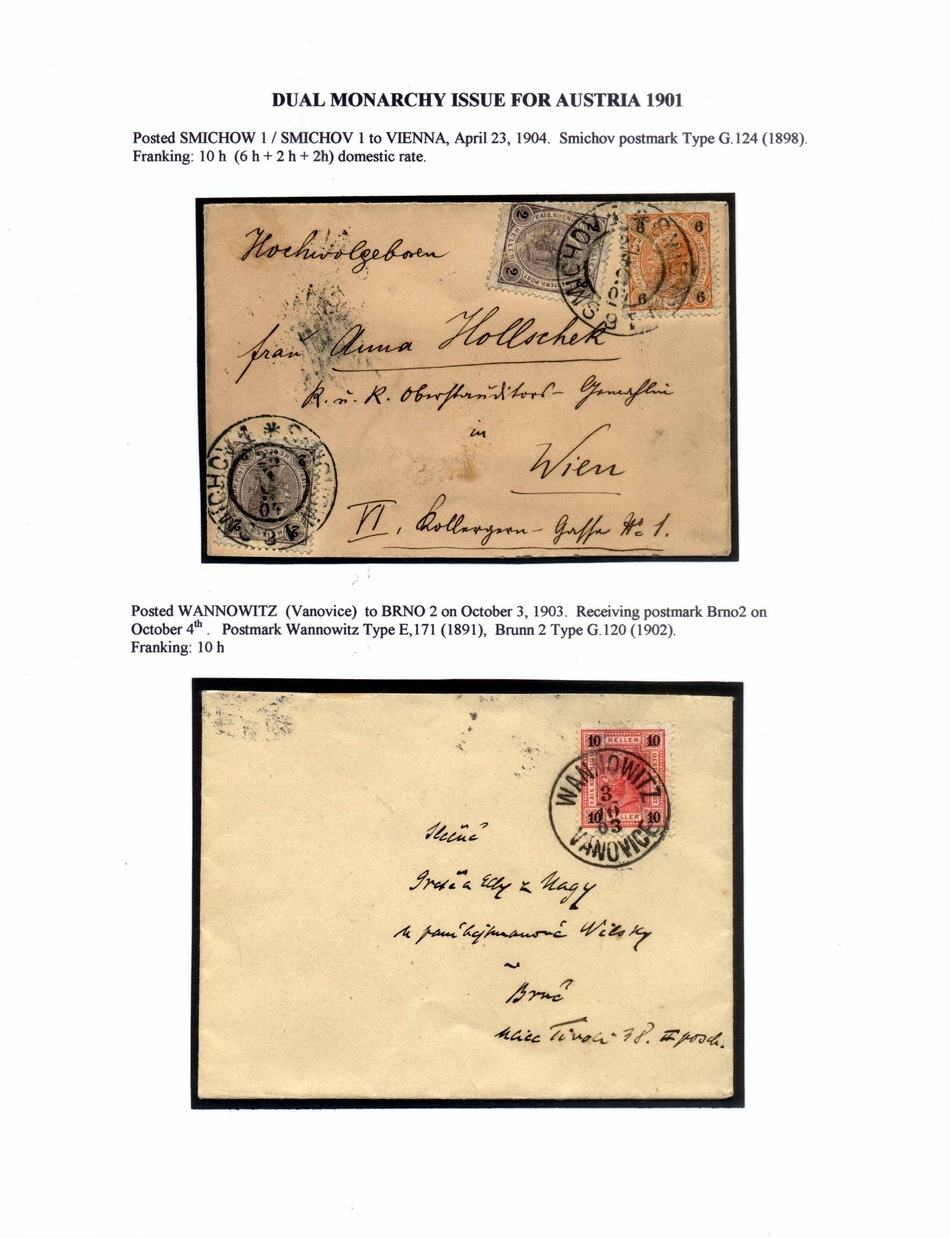 DUAL MONARCHY ISSUE FOR AUSTRIA 1901
Posted SMICHOW 1 / SMICHOV 1 to VIENNA, April 23, 1904. Smichov postmark Type G.124 (1898).
Franking: 10 h (6 h + 2 h + 2h) domestic rate.
Hochwolgeboren
2
6 6
SMICHOV
2
6 6
frau Anna Hollschek
K. u. K. Oberstauditors- Gemahlin
in
Wien
SMICHOV 1
04
VI, Kollergern- Gasse No 1.
Posted WANNOWITZ (Vanovice) to BRNO 2 on October 3, 1903. Receiving postmark Brno2 on
October 4th . Postmark Wannowitz Type E,171 (1891), Brunn 2 Type G.120 (1902).
Franking: 10 h
10 HELLER 10
WANNOWITZ
3
10
03
10 HELLER 10
VANOVICE
Slečně
Edy z Nagy
u paní hejtmanové Wilsky
v
Brně
ulice Tivoli 38. II posch.